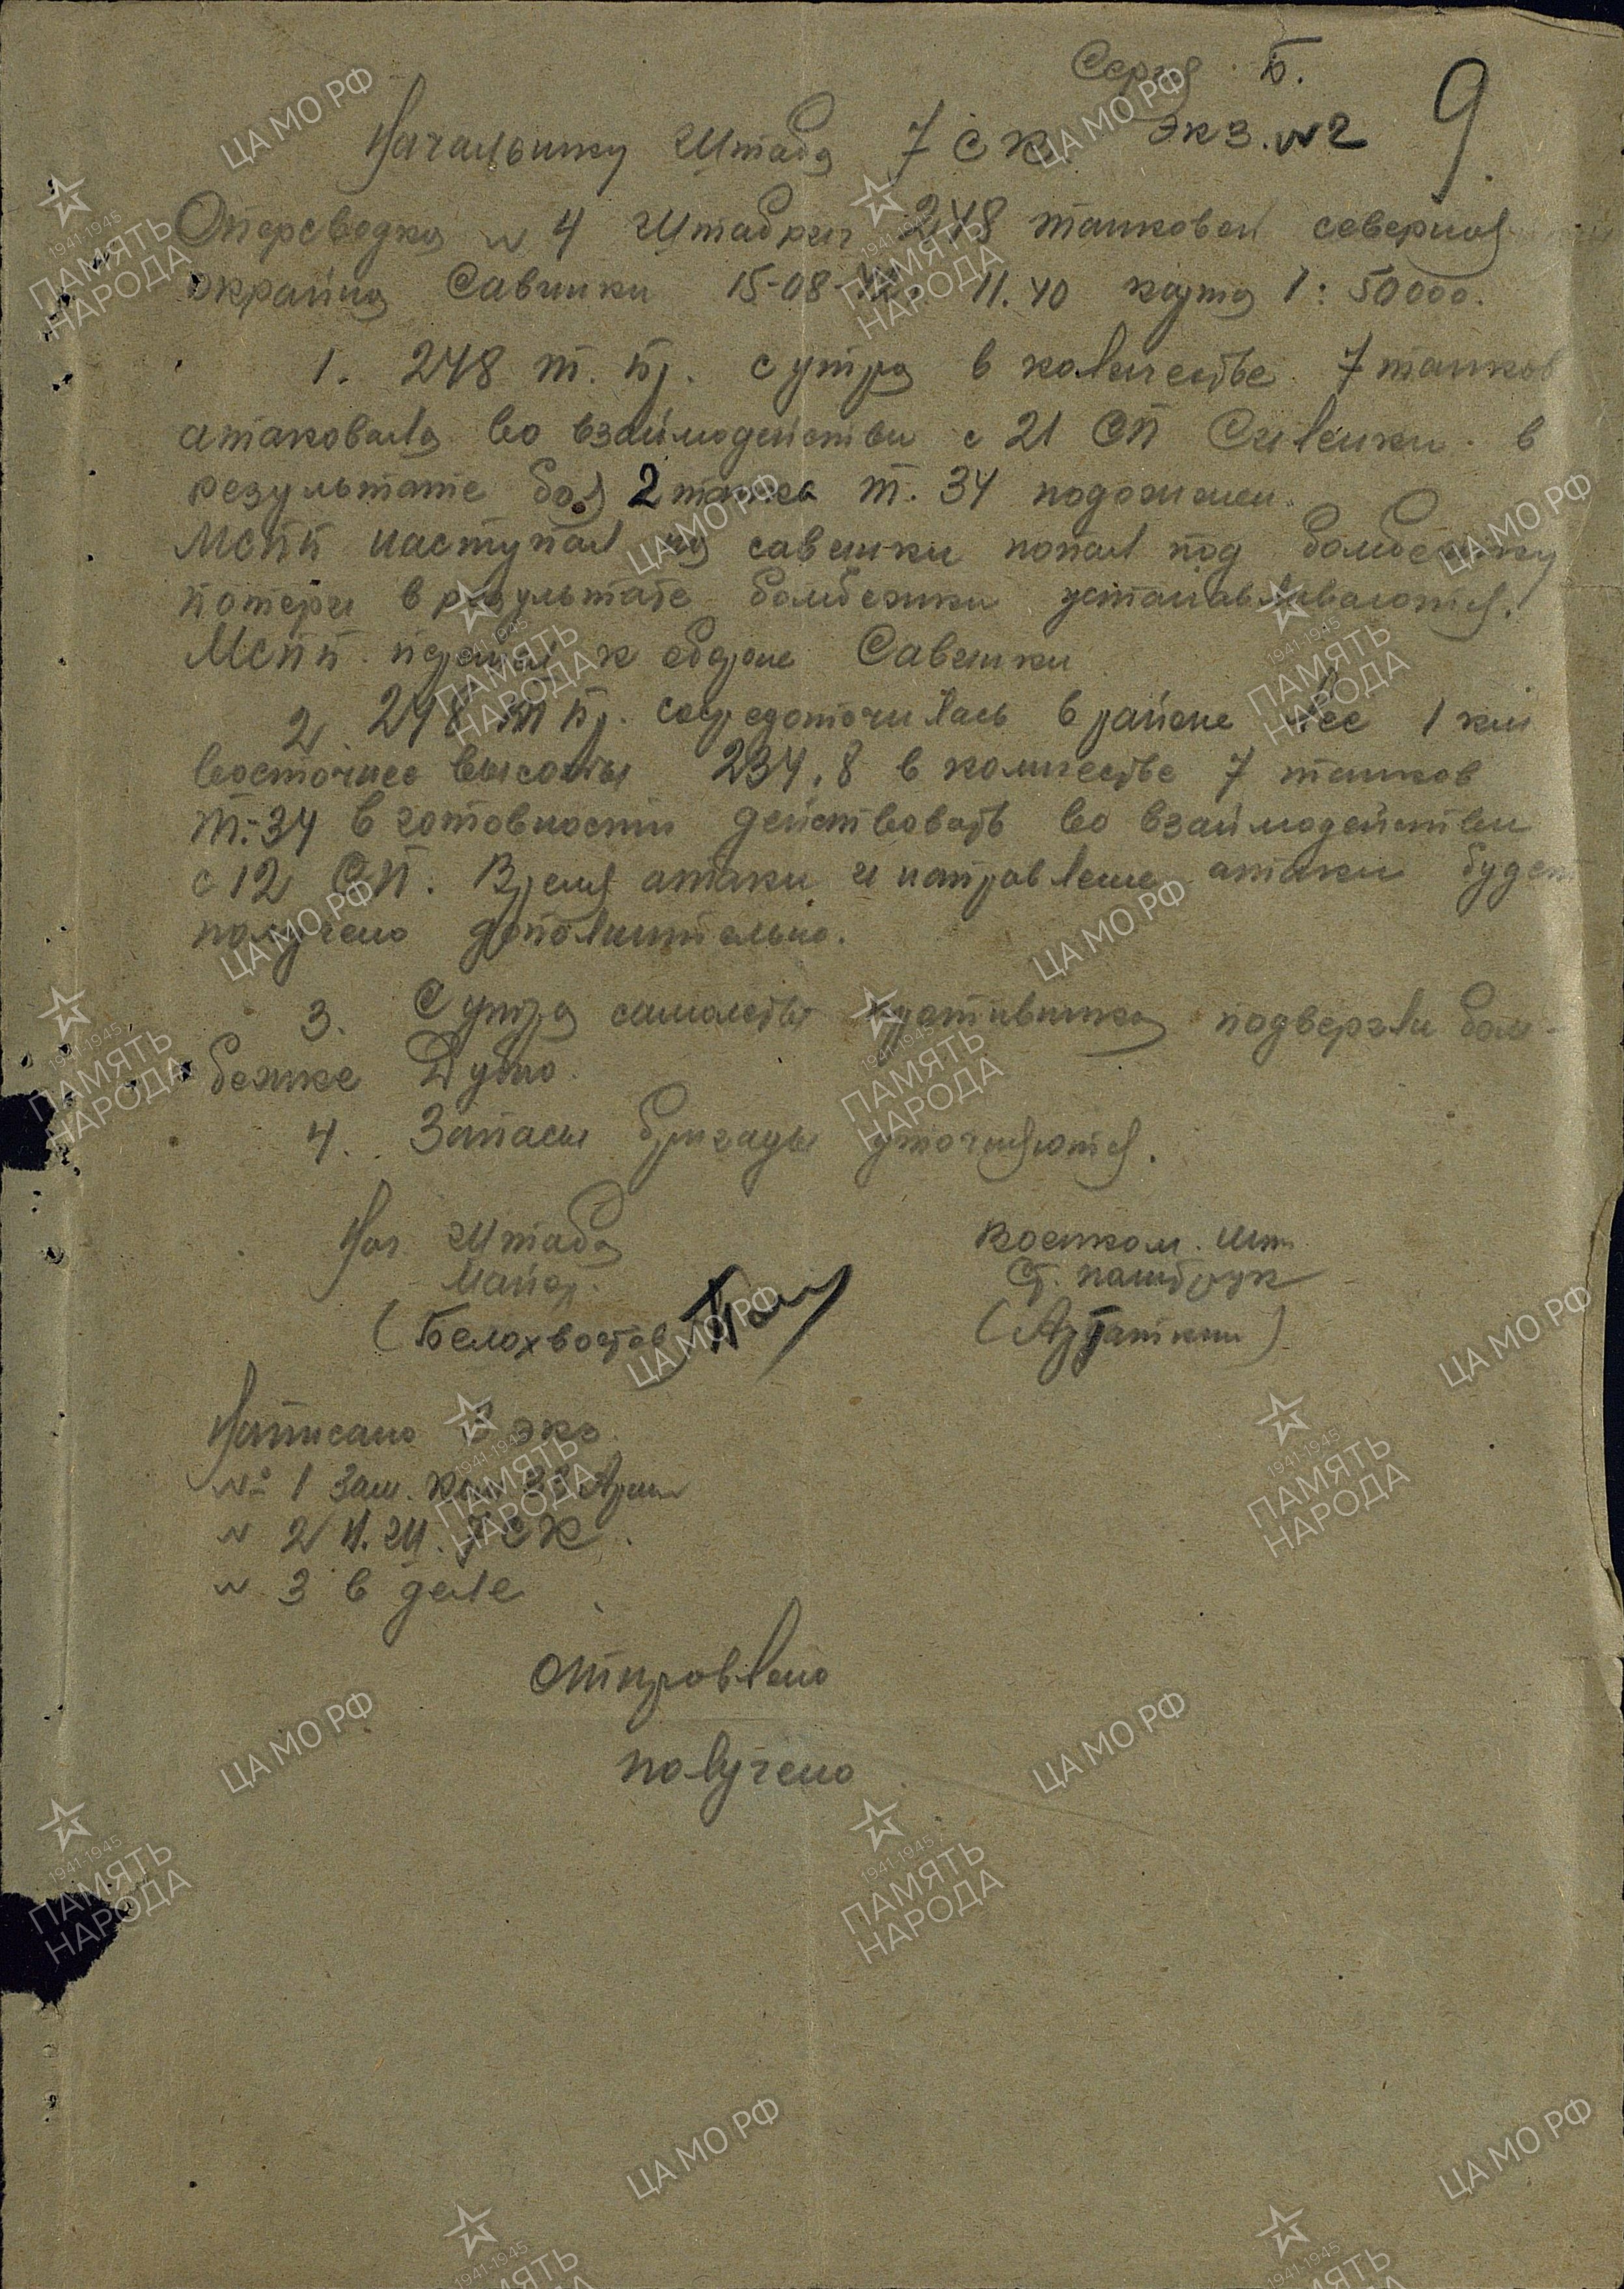 Серия Б.
Экз. №2 9
Начальнику Штаба 7 СК.
Оперсводка № 4 Штабриг 248 танковой северная
окраина Савинки 15-08-42. 11.40 карта 1:50000.
1. 248 т. бр. с утра в количестве 7 танков
атаковала во взаимодействи с 21 СП в
результате боя 2 танка Т.34 подожжен.
МСПБ наступал на савенки попал под бомбежку
потери в результате бомбежки устанавливаются.
МСПБ перешел к обороне Савенки
2. 248 т бр. сосредоточилась в районе лес 1 км
восточнее высоты 234,8 в количестве 7 танков
Т-34 в готовности действовать во взаимодействи
с 12 СП. Время атаки и направление атаки будет
получено дополнительно.
3. С утра самолеты противника подвергли бом-
бежке Дубно.
4. Запасы бригады уточняются.
Нач Штаба
Майор.
(Белохвостов)
Военком. Шт.
Ст. политрук
Написано 3 экз.
№ 1 Зам. Ком 33 Арми
№ 2 Н.Ш. 7 СК.
№ 3 в деле
Отправлено
получено
ЦА МО РФ
1941-1945
ПАМЯТЬ
НАРОДА